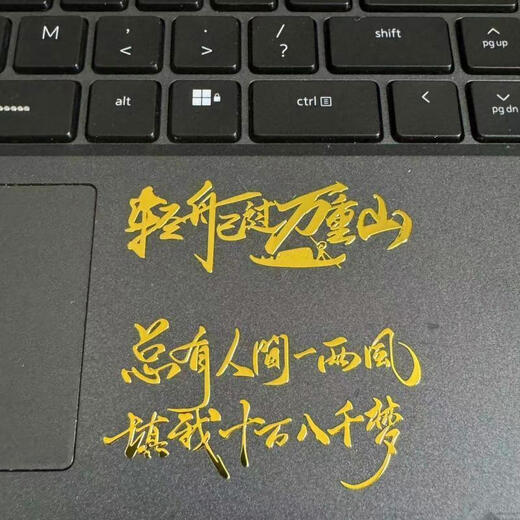 M < , > . ? / shift ^ pg up
alt ctrl < pg dn
轻舟已过万重山
总有人間一两風
填我十万八千梦